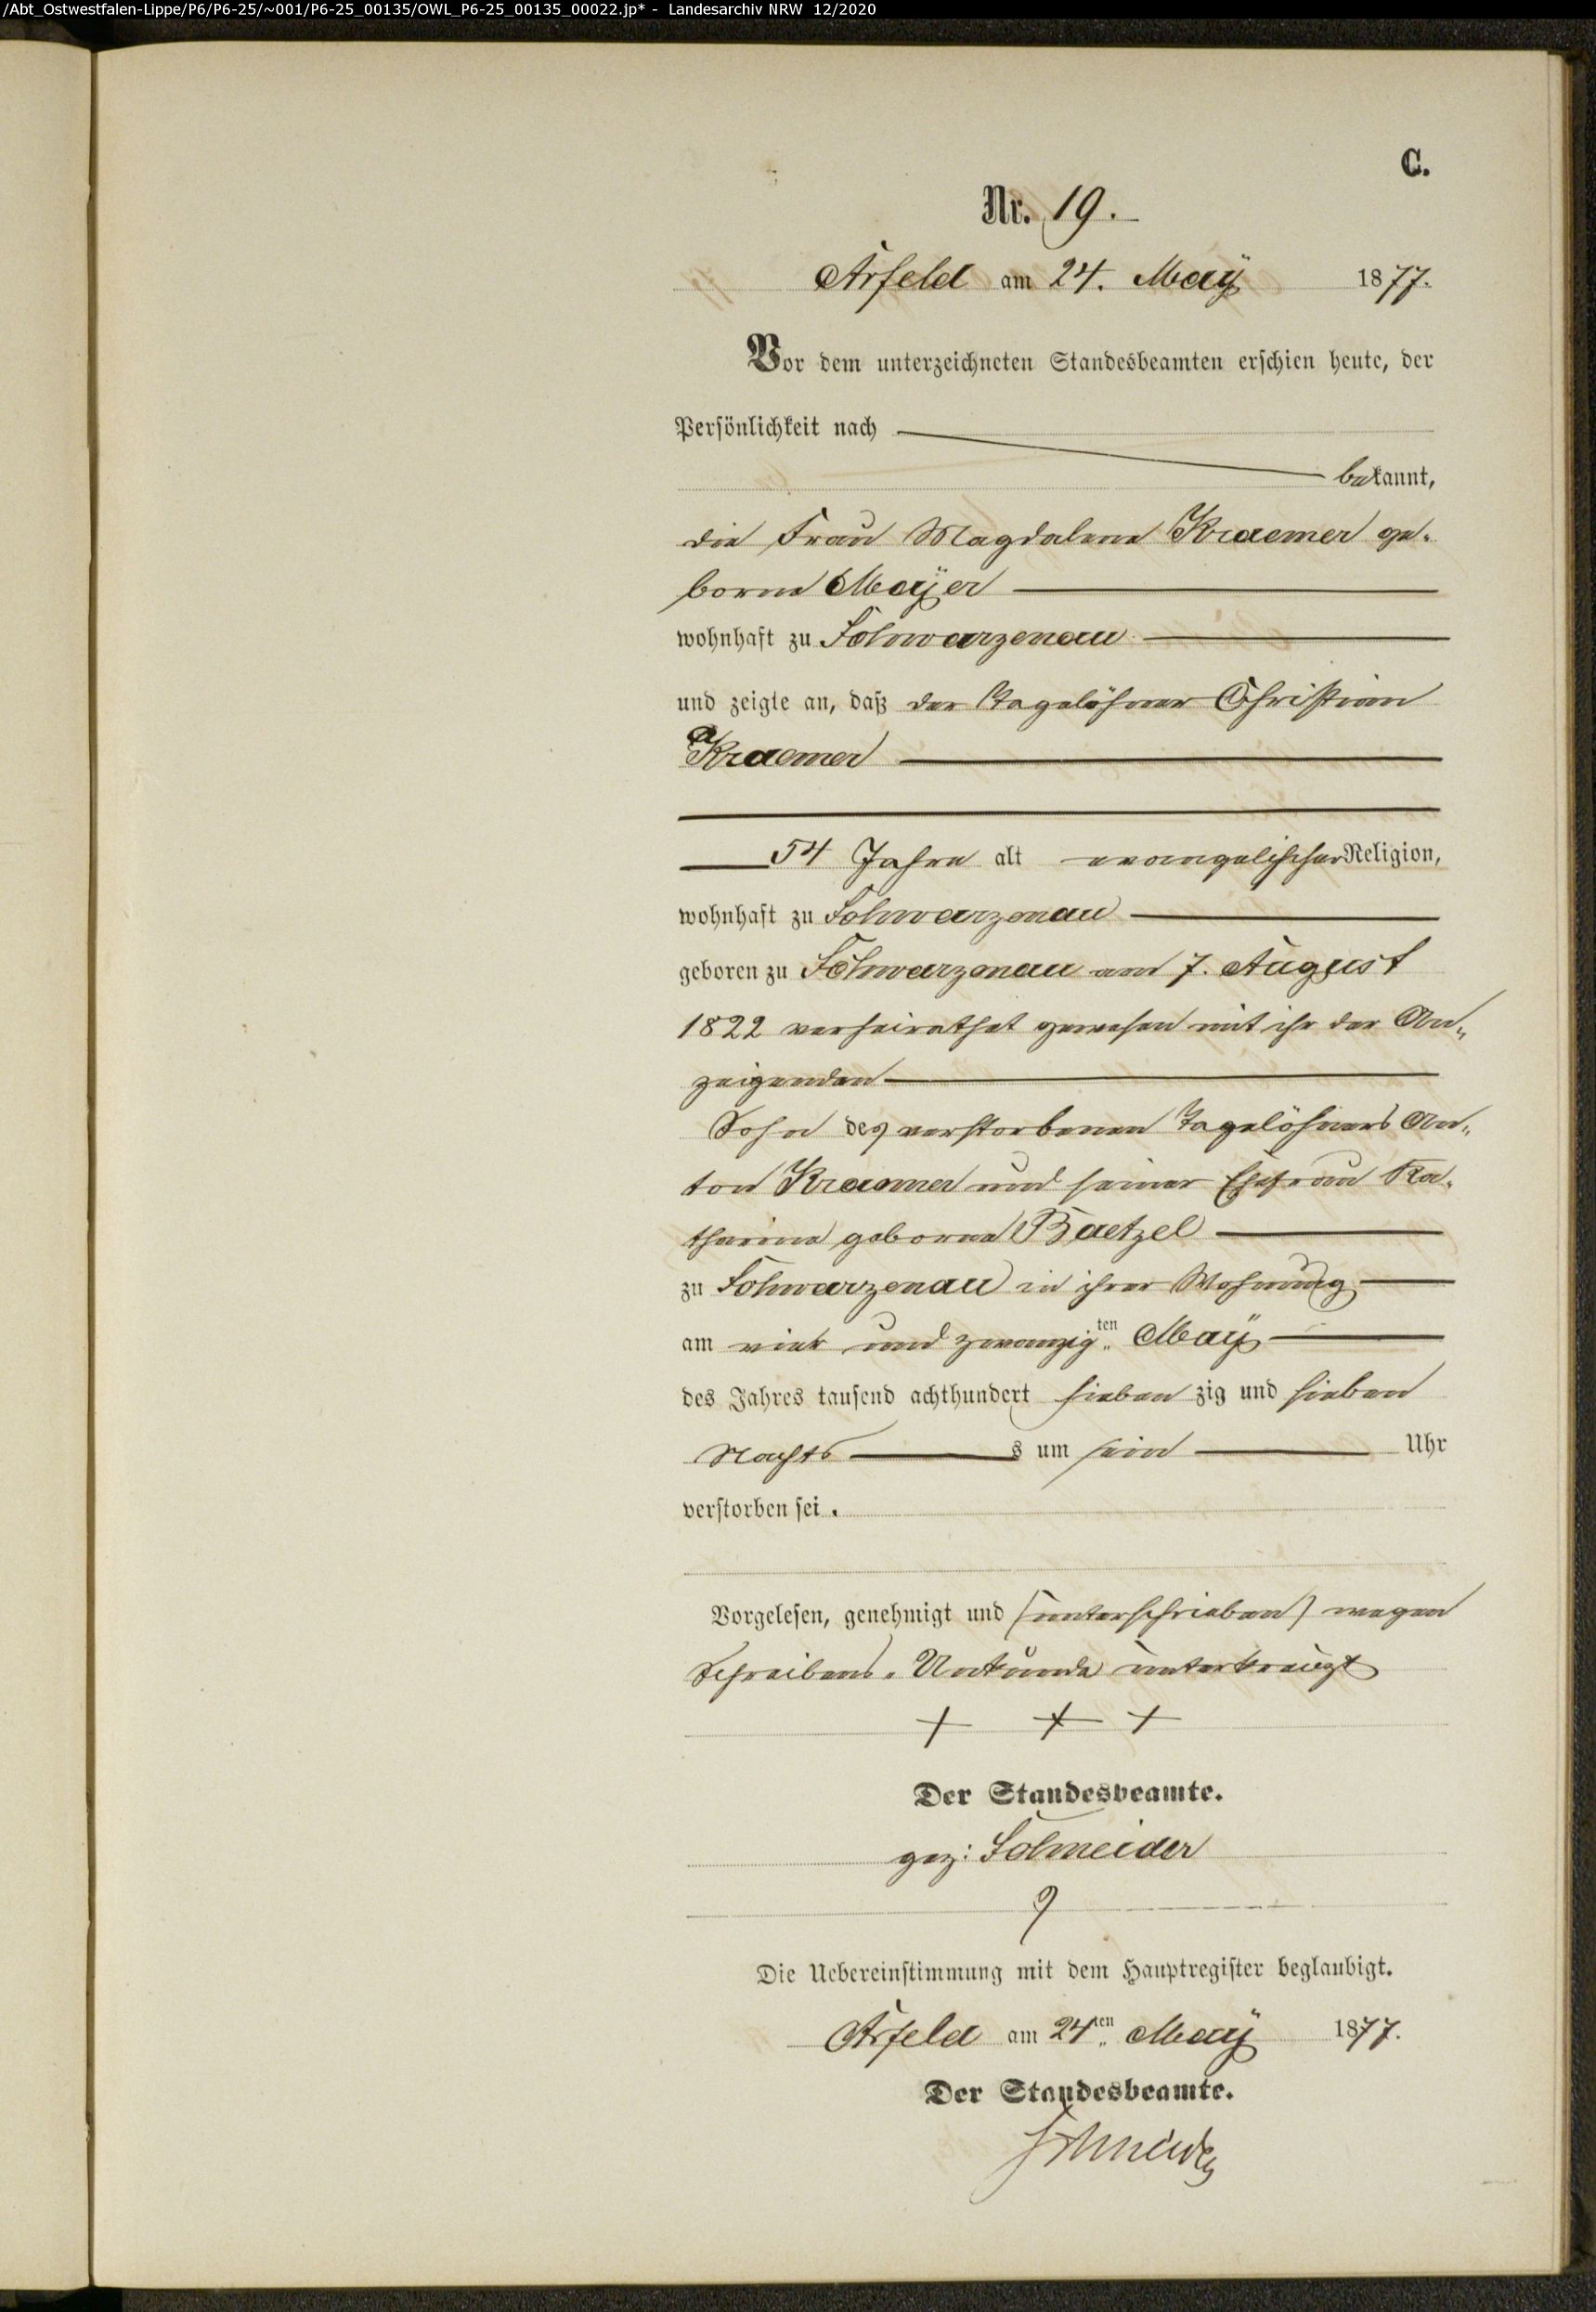 /Abt_Ostwestfalen-Lippe/P6/P6-25/~001/P6-25_00135/OWL_P6-25_00135_00022.jp* - Landesarchiv NRW 12/2020
C.
Nr. 19.
Arfeld am 24. Maÿ 1877.
Vor dem unterzeichneten Standesbeamten erschien heute, der
Persönlichkeit nach
bekannt,
die Frau Magdalena Kraemer ge-
borne Maÿer
wohnhaft zu Schwarzenau
und zeigte an, daß der Tagelöhner Christian
Kraemer
54 Jahre alt evangelischer Religion,
wohnhaft zu Schwarzenau
geboren zu Schwarzenau am 7. August
1822 verheirathet gewesen mit ihr der An-
zeigenden
Sohn des verstorbenen Tagelöhners An-
ton Kraemer und seiner Ehefrau Ka-
tharina geborne Baetzel
zu Schwarzenau in ihrer Wohnung
am vier und zwanzigten Maÿ
des Jahres tausend achthundert sieben zig und sieben
Nachts s um Uhr
verstorben sei.
Vorgelesen, genehmigt und (unterschrieben) wegen
Schreibens-Unkunde unterkreuzt
+ + +
Der Standesbeamte.
gez: Schneider
Die Uebereinstimmung mit dem Hauptregister beglaubigt.
Arfeld am 24ten Maÿ 1877.
Der Standesbeamte.
Schneider